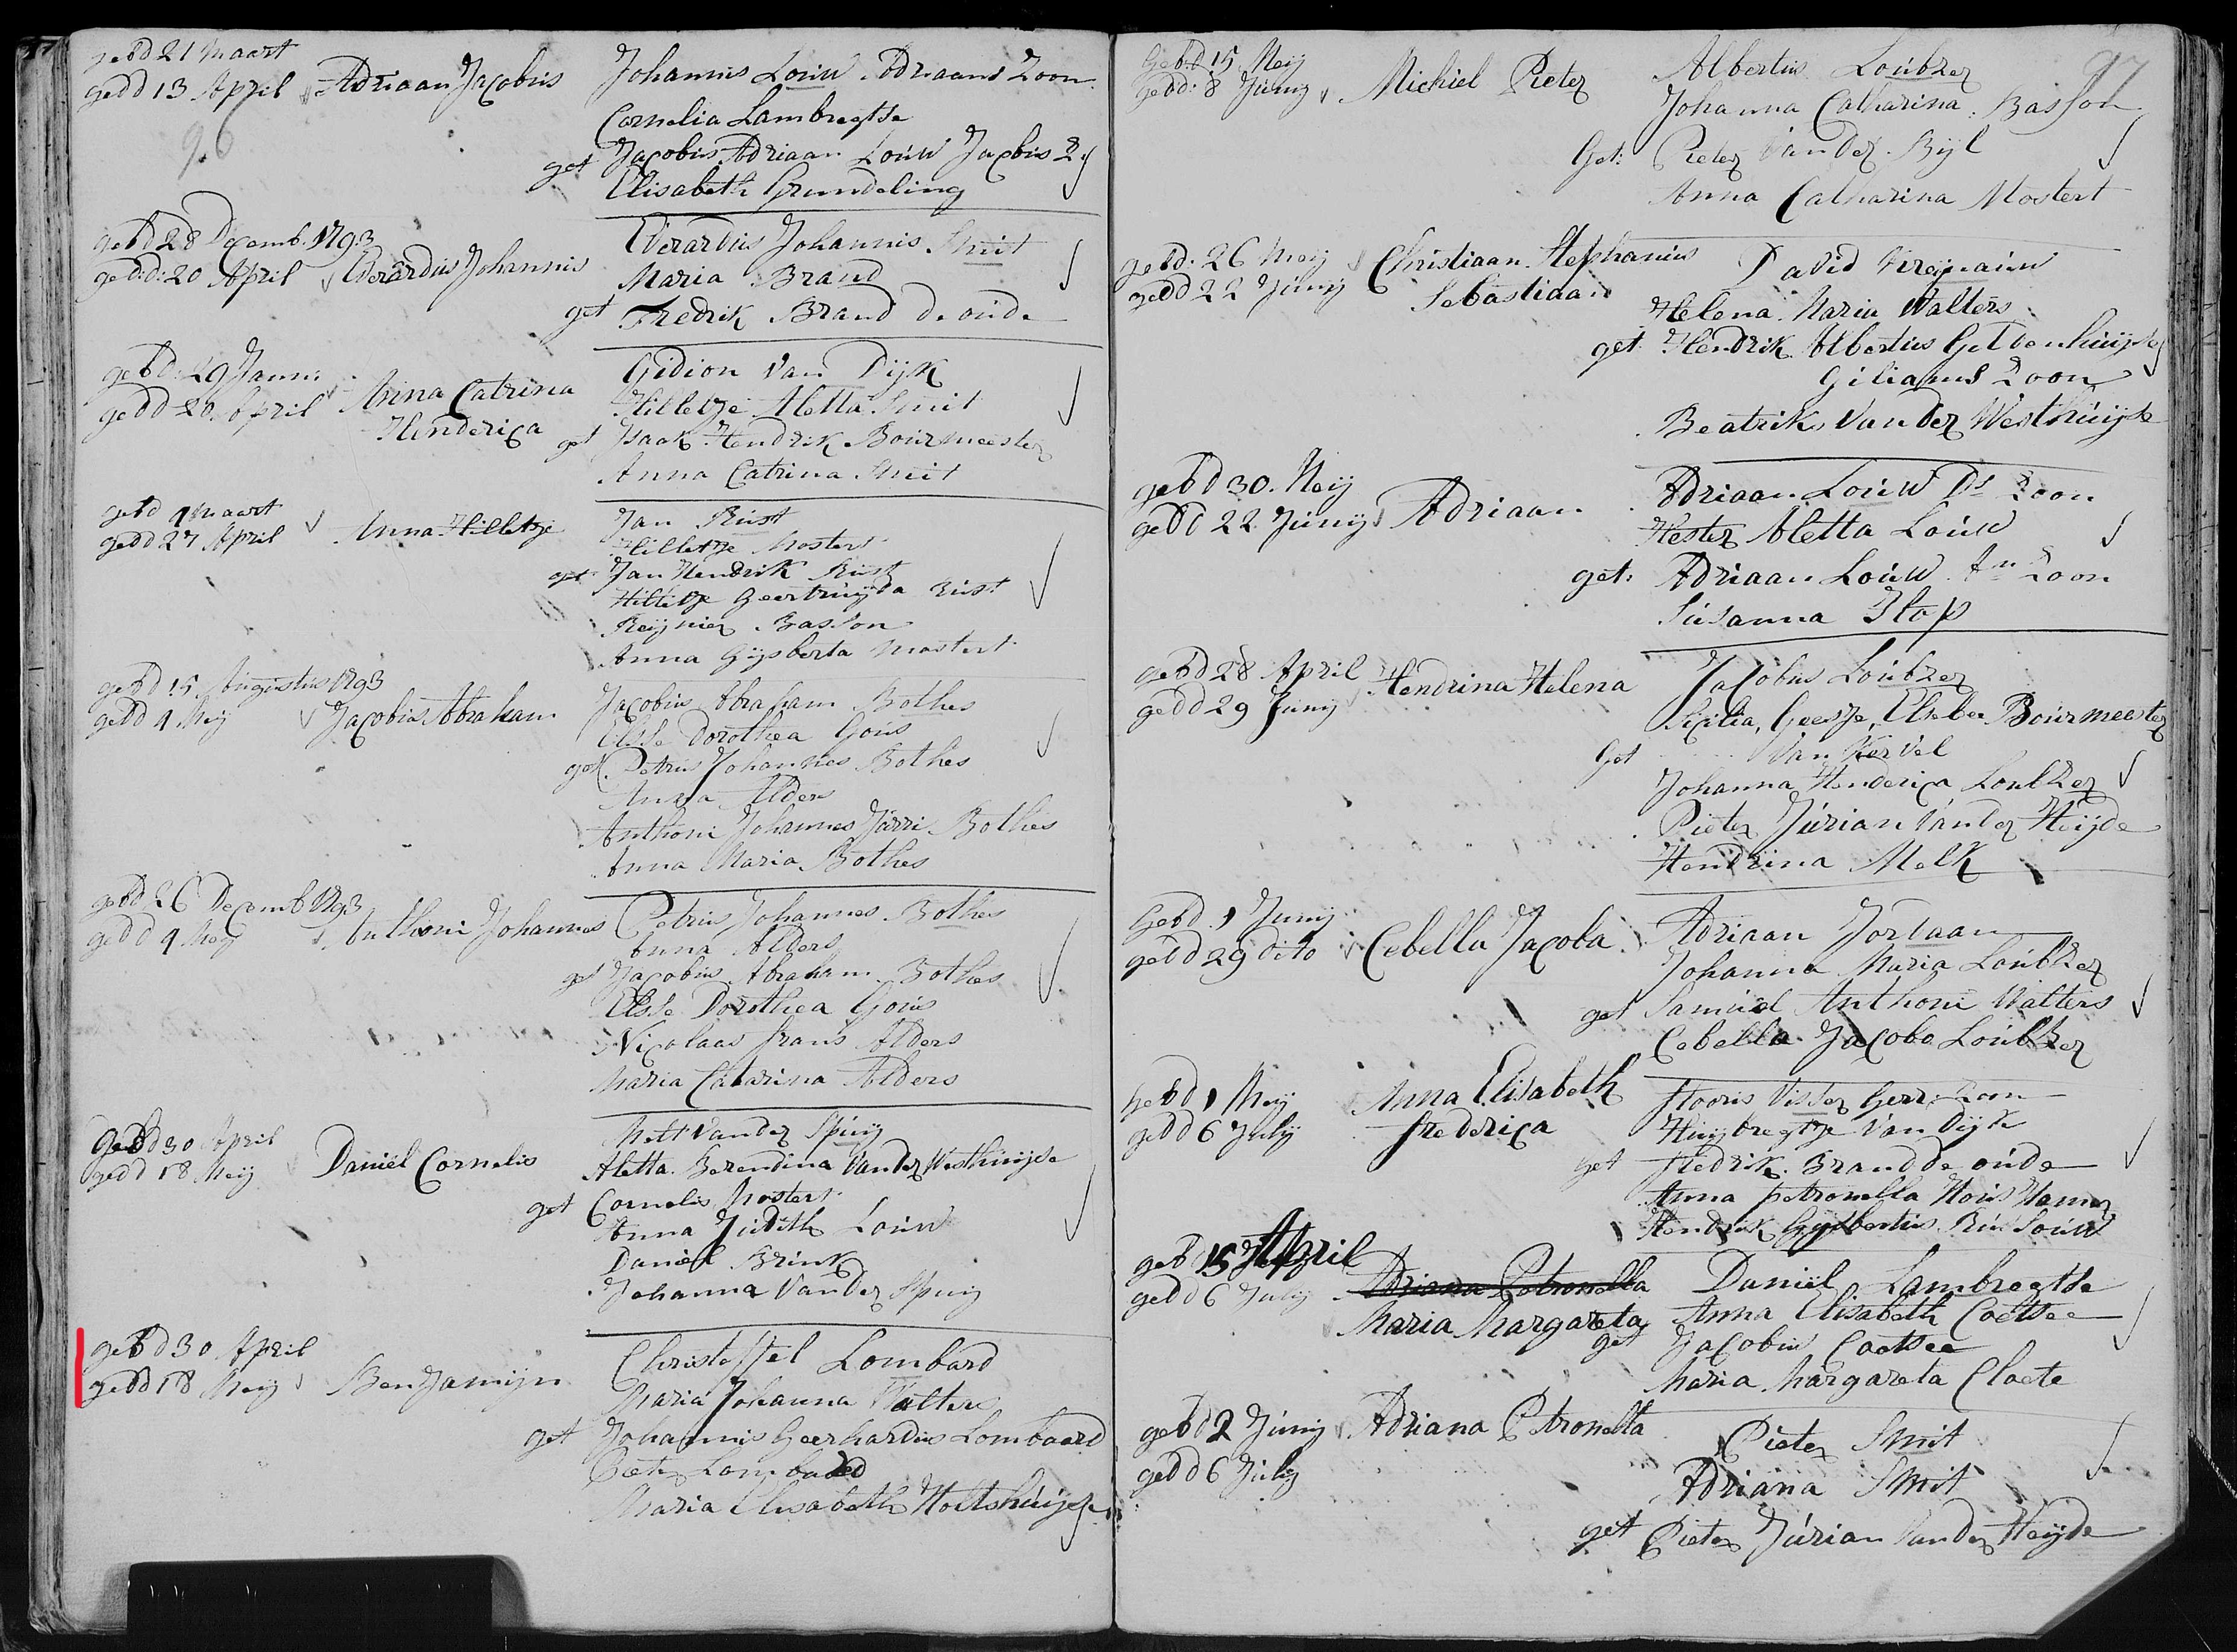 gebd 21 Maart
gedd 13 April Adriaan Jacobus
Johannis Louw Adriaans Zoon
Cornelia Lambregtse
get Jacobus Adriaan Louw Jacobus Z
Elisabeth Grundeling
96
gebd 28 Decemb. 1793
ged:d: 20 April Everardus Johannis
Everardus Johannis Smit
Maria Brand
get Fredrik Brand de oude
gebd: 29 Janu:
gedd 20 April Anna Catrina
Henderica
Gidion Van Dijk
Hilletje Aletta Smit
get Isaak Hendrik Bourmeester
Anna Catrina Smit
gebd 9 Maart
gedd 27 April Anna Hilletje
Jan Rust
Hilletje Mostert
get Jan Hendrik Rust
Hilletje Geertruijda Rust
Reijnier Basson
Anna Gijsberta Mostert
gebd 15 Augustus 1793
gedd 4 Meij Jacobus Abraham
Jacobus Abraham Bothes
Elsie Dorothea Gous
get. Petrus Johannes Bothes
Anna Alders
Anthoni Johannes Jurri Bothes
Anna Maria Bothes
gebd 26 Decemb 1793
gedd 4 Meij Anthoni Johannes
Petrus Johannes Bothes
Anna Alders
get Jacobus Abraham Bothes
Elsie Dorothea Gous
Nicolaas frans Alders
Maria Catarina Alders
Gebd 30 April
gedd 18 Meij Daniel Cornelis
Melt Vander Spuij
Aletta Berendina Vander Westhuijse
get Cornelis Mostert
Anna Judith Louw
Daniel Brink
Johanna Vander Spuij
gebd 30 April
gedd 18 Meij Benjamijn
Christoffel Lombard
Maria Johanna Walters
get Johannis Geerhardus Lombaard
Pieter Lombaard
Maria Elisabeth Holtshuijse
97
Gebd 15 Meij
gedd: 8 Junij Michiel Pieter
Albertus Loubzer
Johanna Catharina Basson
Get: Pieter Vander Bijl
Anna Catharina Mostert
gebd: 26 Meij Christiaan Stephanus
gedd 22 Junij Sebastiaan
David
Helena Maria Walters
get Hendrik Albertus Geldenhuijse
Giliams Zoon
Beatriks Vander Westhuijse
gebd 30 Meij
gedd 22 Junij Adriaan
Adriaan Louw Ds Zoon
Hester Aletta Louw
get: Adriaan Louw An Zoon
Susanna Stop
gebd 28 April Hendrina Helena
gedd 29 Junij
Jacobus Loubzer
Sicilia, Geesje, Elsebe Bourmeester
Get Van Kervel
Johanna Henderica Loubzer
Pieter Jurian Vander Heijde
Hendrina Melk
Gebd 1 Junij
gedd 29 dito Cebella Jacoba
Adriaan Jordaan
Johanna Maria Loubzer
get Samuel Anthoni Walters
Cebella Jacoba Loubzer
gebd 1 Meij Anna Elisabeth
gedd 6 Julij frederica
Flooris Visser Gerr: Zoon
Huijbregtje Van Dijk
get Fredrik Brand de oude
Anna petronella
Hendrik Gijsbertus
gebd 15 April
gedd 6 Julij Adriana Petronella
Maria Margareta
Daniel Lambregtse
Anna Elisabeth Coetsee
get Jacobus Coetsee
Maria Margareta Cloete
gebd 2 Junij Adriana Petronella
gedd 6 Julij
Pieter Smit
Adriana Smit
get Pieter Jurian Vander Heijde